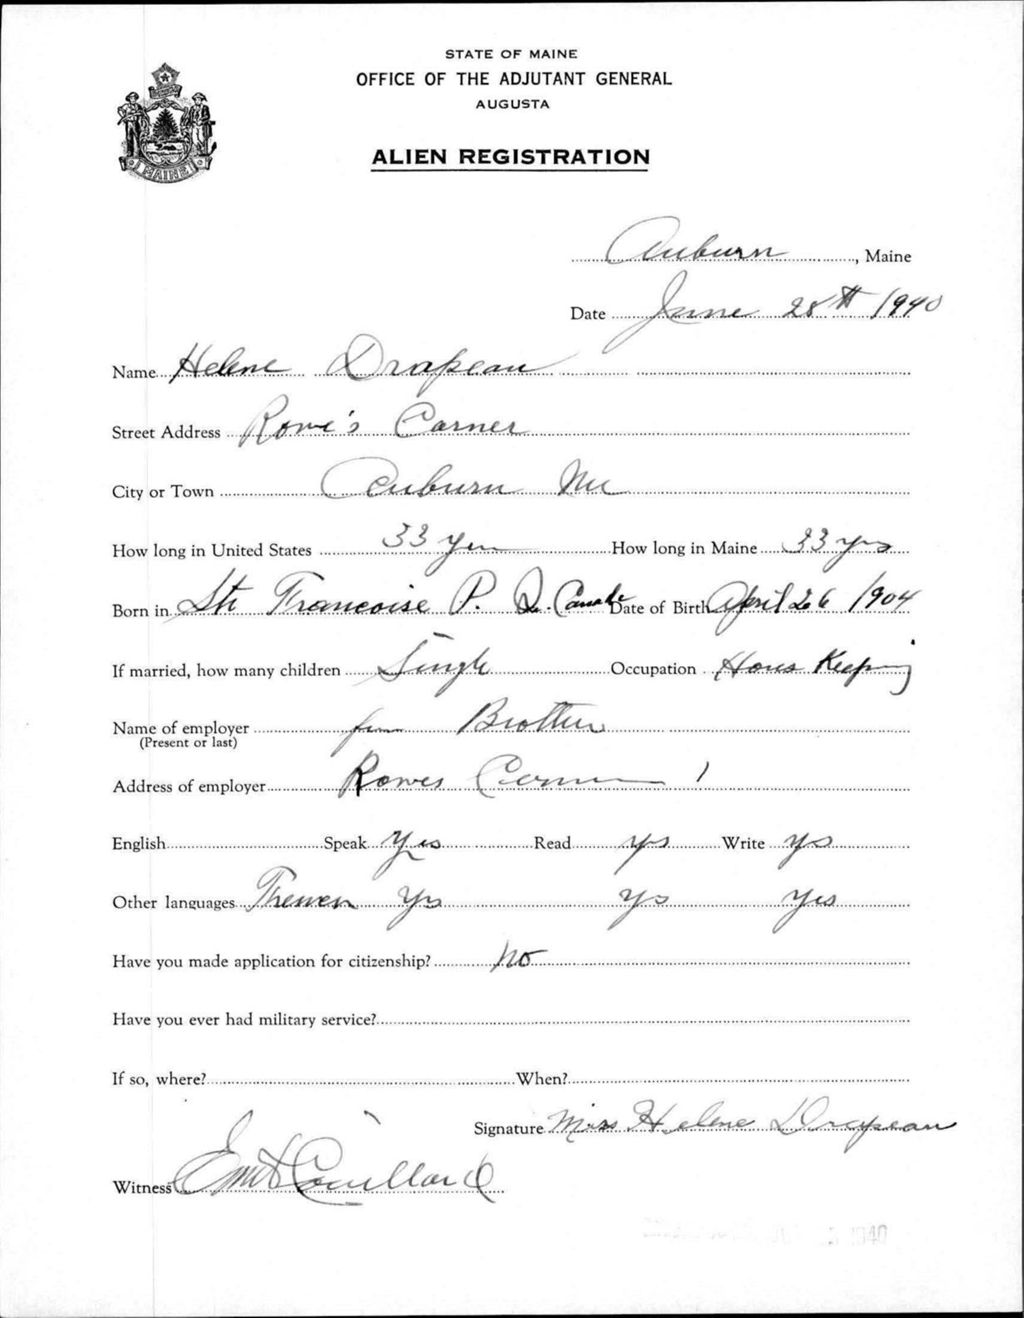 STATE OF MAINE
OFFICE OF THE ADJUTANT GENERAL
AUGUSTA
ALIEN REGISTRATION
MAINE
Auburn, Maine
Date June 28th 1940
Name Helene Drapeau
Street Address Rowe's Corner
City or Town Auburn Me
How long in United States 33 yrs How long in Maine 33 yrs
Born in Ste Francoise P. Q. Canada Date of Birth April 26 1904
If married, how many children Single Occupation Hous Keeping
Name of employer for Brother
(Present or last)
Address of employer Rowes Corner 1
English Speak Yes Read yes Write yes
Other languages yes yes yes
Have you made application for citizenship? No
Have you ever had military service?
If so, where? When?
Signature Miss Helene Drapeau
Witness Couillard
1940